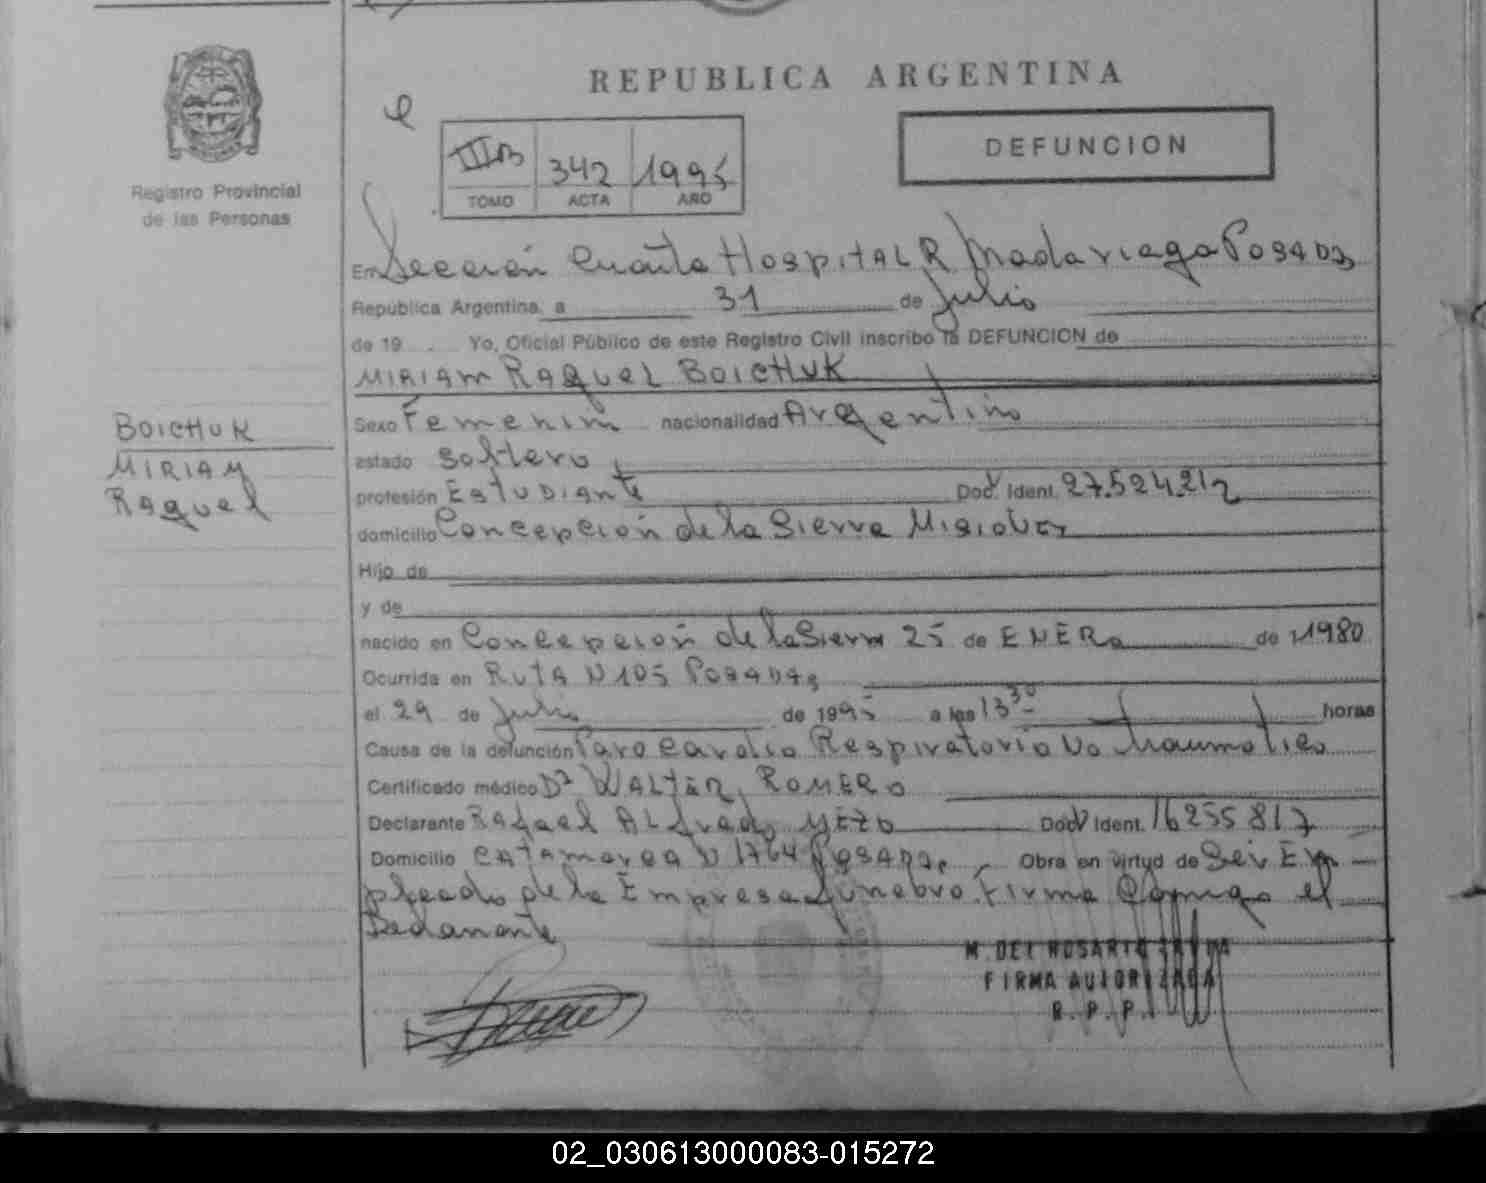 REPUBLICA ARGENTINA
DEFUNCION
Registro Provincial
de las Personas
III B 342 1995
TOMO ACTA AÑO
En Sección Cuarta Hospital R Madariaga Posadas
República Argentina, a 31 de Julio
de 19 Yo, Oficial Público de este Registro Civil inscribo la DEFUNCION de
MIRIAM RAQUEL BOICHUK
BOICHUK
MIRIAM
Raquel
Sexo Femenino nacionalidad Argentino
estado Soltero
profesión Estudiante Doc. Ident. 27.524.212
domicilio Concepción de la Sierra Misiones
Hijo de
y de
nacido en Concepción de la Sierra 25 de ENERo de 1980
Ocurrida en RUTA N 105 Posadas
el 29 de Julio de 1995 a las 13 30 horas
Causa de la defunción Paro Cardio Respiratorio No traumatico
Certificado médico Dr WALTER ROMERO
Declarante Rafael Alfredo Doc. Ident. 16255817
Domicilio Catamarca N 1764 Posadas Obra en virtud de Ser Em
pleado de la Empresa funebre. Firma Conmigo el
Declarante
M. DEL ROSARIO
FIRMA AUTORIZADA
R. P. P.
02_030613000083-015272